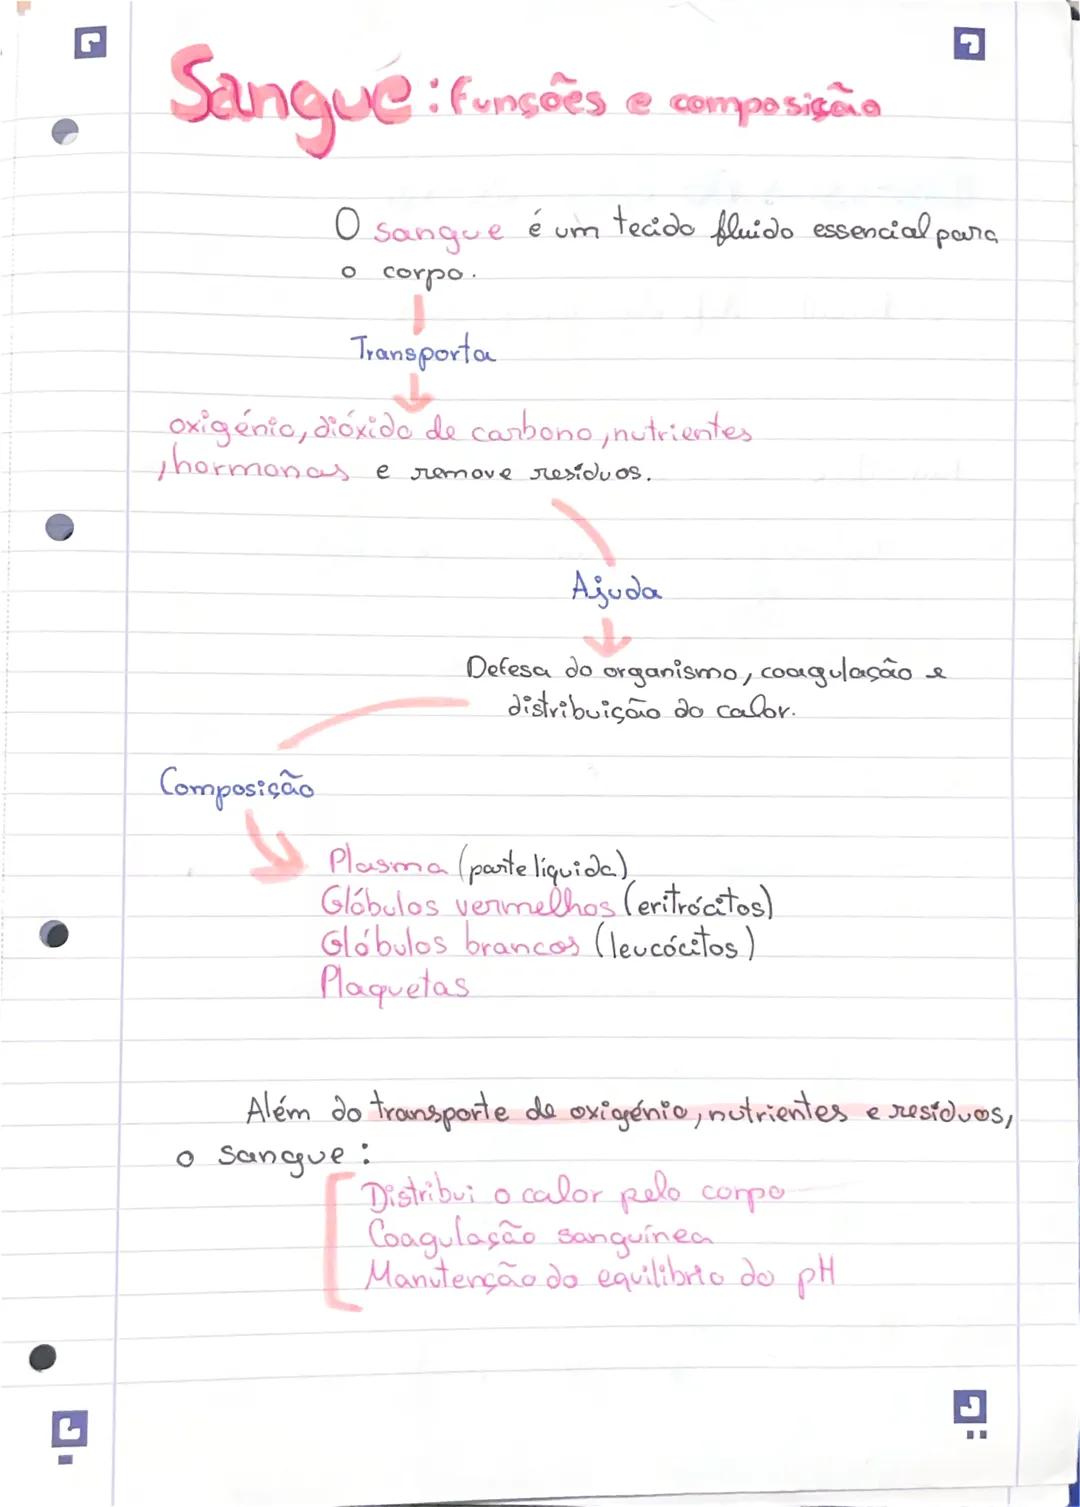 Sangue: funções e composição
O sangue é um tecido fluido essencial para
o corpo.
Transporta
oxigénio, dióxido de carbono, nutrientes
, hormonas e remove resíduos.
Ajuda
Defesa do organismo, coagulação e
distribuição do calor.
Composição
Plasma (parte líquida)
Glóbulos vermelhos (eritrócitos)
Glóbulos brancos (leucócitos)
Plaquetas
Além do transporte de oxigénio, nutrientes e resíduos,
o sangue:
Distribui o calor pelo corpo
Coagulação sanguínea
Manutenção do equilibrio do pH